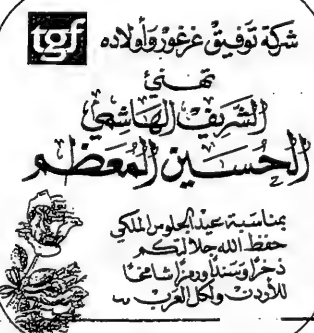 شركة توفيق غرغور وأولاده
tgf
تهنئ
الشريف الهاشمي
الحسين المعظم
بمناسبة عيد الجلوس الملكي
حفظ الله جلالتكم
ذخراً وسنداً ورمزاً شامخاً
للأردن ولكل العرب